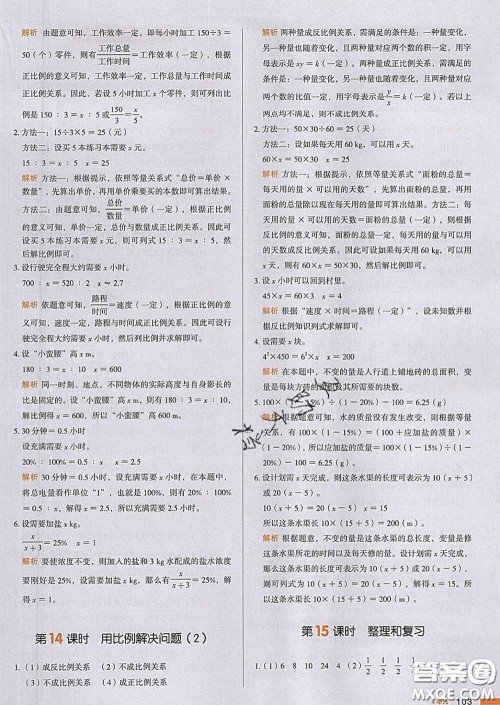 解析 由题意可知，工作效率一定，即每小时加工 150÷3＝
50（个）零件，则有 工作总量/工作时间 ＝工作效率（一定），根据
正比例的意义可知，工作效率一定，工作总量与工作时间
成正比例关系。因此，若设 5 小时加工 x 个零件，则可以
列出比例是 150 ∶ 3 ＝ x ∶ 5 或 150/3 ＝ x/5。
2. 方法一：15÷3×5＝25（元）
方法二：设买 5 本练习本需要 x 元。
15 ∶ 3 ＝ x ∶ 5　x＝25
解析 方法一：根据提示，依照等量关系式“总价＝单价 ×
数量”，先算出单价，再用单价乘要买的本数即可解答。
方法二：由题意可知，总价/数量 ＝单价（一定），根据正比例的
意义可知，单价一定，总价与数量成正比例关系。因此可
设买 5 本练习本需要 x 元，则可列式 15 ∶ 3 ＝ x ∶ 5，
然后解比例即可。
3. 设行驶完全程大约需要 x 小时。
700 ∶ x ＝ 520 ∶ 2　x≈2.7
解析 依题意可知，路程/时间 ＝速度（一定），根据正比例关
系的意义可知，速度一定，路程与时间成正比例。可设行
驶完全程大约需要 x 小时，然后列比例并求解即可。
4. 设“小蛮腰”高 x m。
180 ∶ 3 ＝ x ∶ 10　x＝600
解析 同一时刻，同一地点，不同物体的实际高度与自身影长的
比是固定的。设“小蛮腰”高 x m，则可以列出比例
180 ∶ 3 ＝ x ∶ 10，然后解比例即可。
5. 30 分钟＝0.5 小时
设充满需要 x 小时。
20% ∶ 0.5 ＝ 100% ∶ x　x＝2.5
解析 30 分钟＝0.5 小时，因为充电速度一定，在本题中，
将总电量看作单位“1”，也就是 100%，则有 20% ∶ 0.5 ＝
100% ∶ x，x＝2.5。所以，充满需要 2.5 小时。
6. 设需要加盐 x kg。
x/(x＋3) ＝25%　x＝1
解析 要使浓度不变，则加入的盐和 3 kg 水配成的盐水浓度
要刚好是 25%，设需要加盐 x kg，则有 x/(x＋3) ＝25%，解
比例即可。
第14课时　用比例解决问题（2）
1.（1）成反比例关系（2）不成比例关系
（3）不成比例关系（4）成正比例关系
解析 两种量成反比例关系，需满足的条件是：一种量变化，
另一种量也随着变化，且相对应两个数的积一定，用字
母表示是 xy＝k（一定）；两种量成正比例关系，需满足
的条件是：一种量变化，另一种量也随着变化，且相对应
两个数的比值一定，用字母表示是 y/x ＝k（一定）。如果以
上两点均不满足，则不成比例关系。
2. 方法一：50×30÷60＝25（天）
方法二：设如果每天用 60 kg，可以用 x 天。
60×x＝50×30　x＝25
解析 方法一：根据提示，依照等量关系式“面粉的总量＝
每天用的量 × 可以用的天数”，先算出面粉的总量，再用
面粉的总量除以现在每天的用量即可解答。
方法二：由题意可知，每天用的量 × 可以用的天数＝面粉
的总量（一定），面粉的总量一定，每天用的量与可以用
的天数成反比例关系。因此可设如果每天用 60 kg，可以
用 x 天，则有 60×x＝50×30，然后解方程即可。
3. 设 x 小时可以回到村里。
45×x＝60×3　x＝4
解析 根据“速度 × 时间＝路程（一定）”，找出对应数量
并根据反比例知识列式求解即可。
4. 设需要 x 块。
解析 在本题中，不变的量是人行道上铺地砖的总面积，变化
的量是每块方砖的面积及其所需的块数。
解析 根据题意可知，水的质量没有发生改变，盐的质量
发生了改变，则有：（100＋应加盐的质量）×（1－20%）＝
100×（1－15%），应加盐的质量为 100×（1－15%）÷
（1－20%）－100＝6.25（g）。
6. 设计划需 x 天完成，则这条水渠的长度可表示为
10（x＋5）或 20（x－5）。
10（x＋5）＝20（x－5）　x＝15
所以这条水渠长 10×（15＋5）＝200（m）。
解析 根据题意可知，本题中，不变的量是水渠的长度，变化的量是修
这条水渠花的时间以及每天修的量。设计划需 x 天完成，
则这条水渠的长度可表示为 10（x＋5）或 20（x－5），
则可列关系式为 10（x＋5）＝20（x－5），解得 x＝15，所
以，这条水渠长 10×（15＋5）＝200（m）。
第15课时　整理和复习
1.（1）6　8　10　24　4（2）1/2　1/2　1/2　1/2　1/2
103